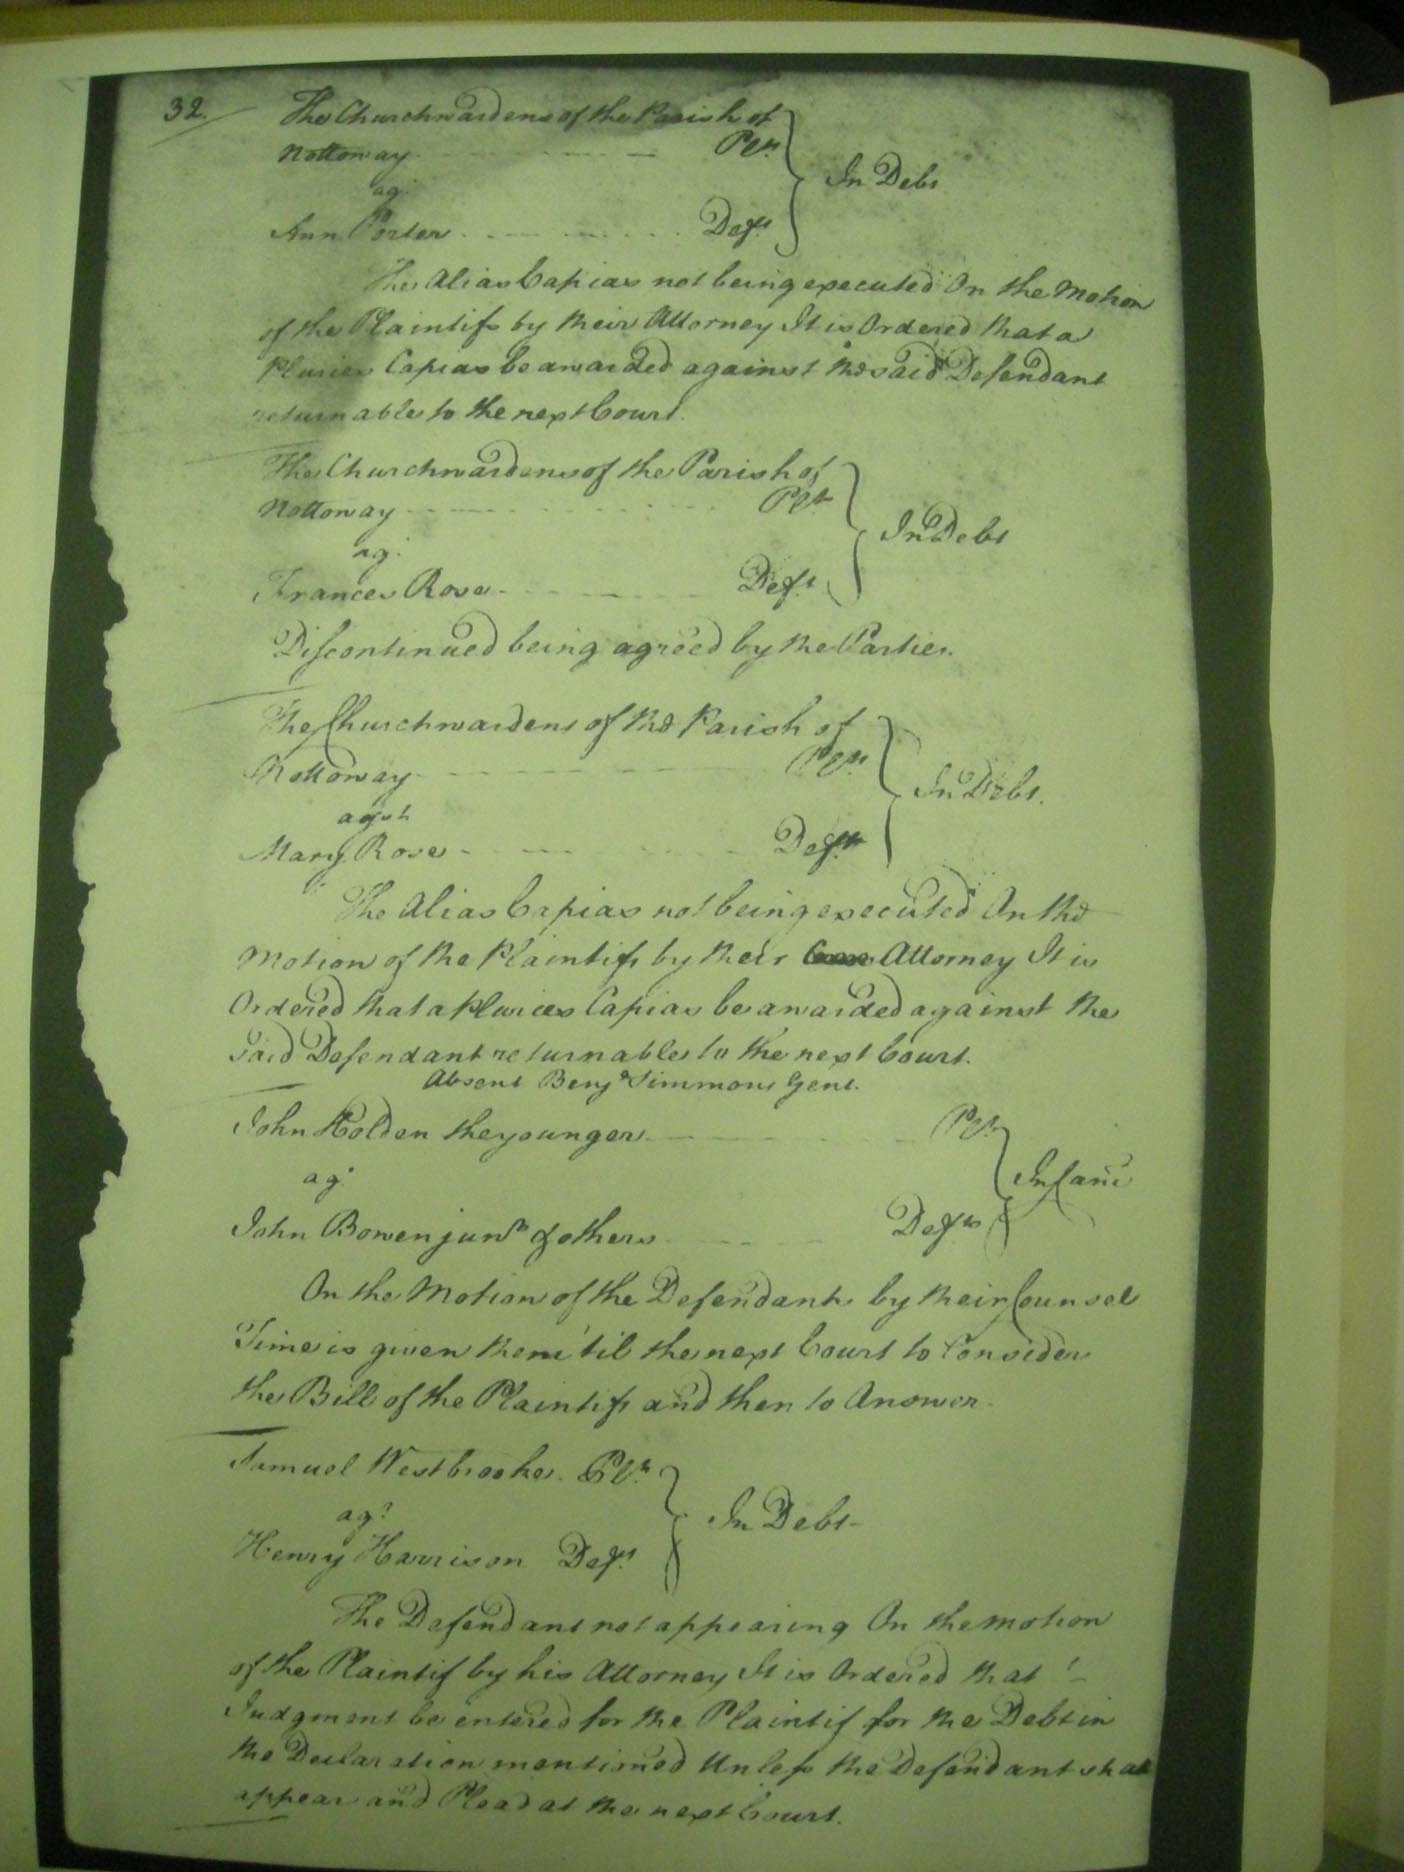 32.
The Churchwardens of the Parish of
Nottoway Plts
agt
Ann Porter Deft
In Debt
The Alias Capias not being executed On the Motion
of the Plaintifs by their Attorney It is Ordered that a
Pluries Capias be awarded against the said Defendant
returnable to the next Court.
The Churchwardens of the Parish of
Nottoway Plts
agt
Frances Rose Deft
In Debt
Discontinued being agreed by the Parties.
The Churchwardens of the Parish of
Nottoway Plts
agst
Mary Rose Deft
In Debt.
The Alias Capias not being executed On the
Motion of the Plaintifs by their Attorney It is
Ordered that a Pluries Capias be awarded against the
said Defendant returnable to the next Court.
Absent Benja Simmons Gent.
John Holden the younger Plt
agt
John Bowen junr & others Defts
In Canc
On the Motion of the Defendants by their Counsel
Time is given them 'til the next Court to Consider
the Bill of the Plaintifs and then to Answer.
Samuel Westbrooke Plt
agt
Henry Harrison Deft
In Debt
The Defendant not appearing On the motion
of the Plaintif by his Attorney It is Ordered that
Judgment be entered for the Plaintif for the Debt in
the Declaration mentioned Unless the Defendant shall
appear and Plead at the next Court.